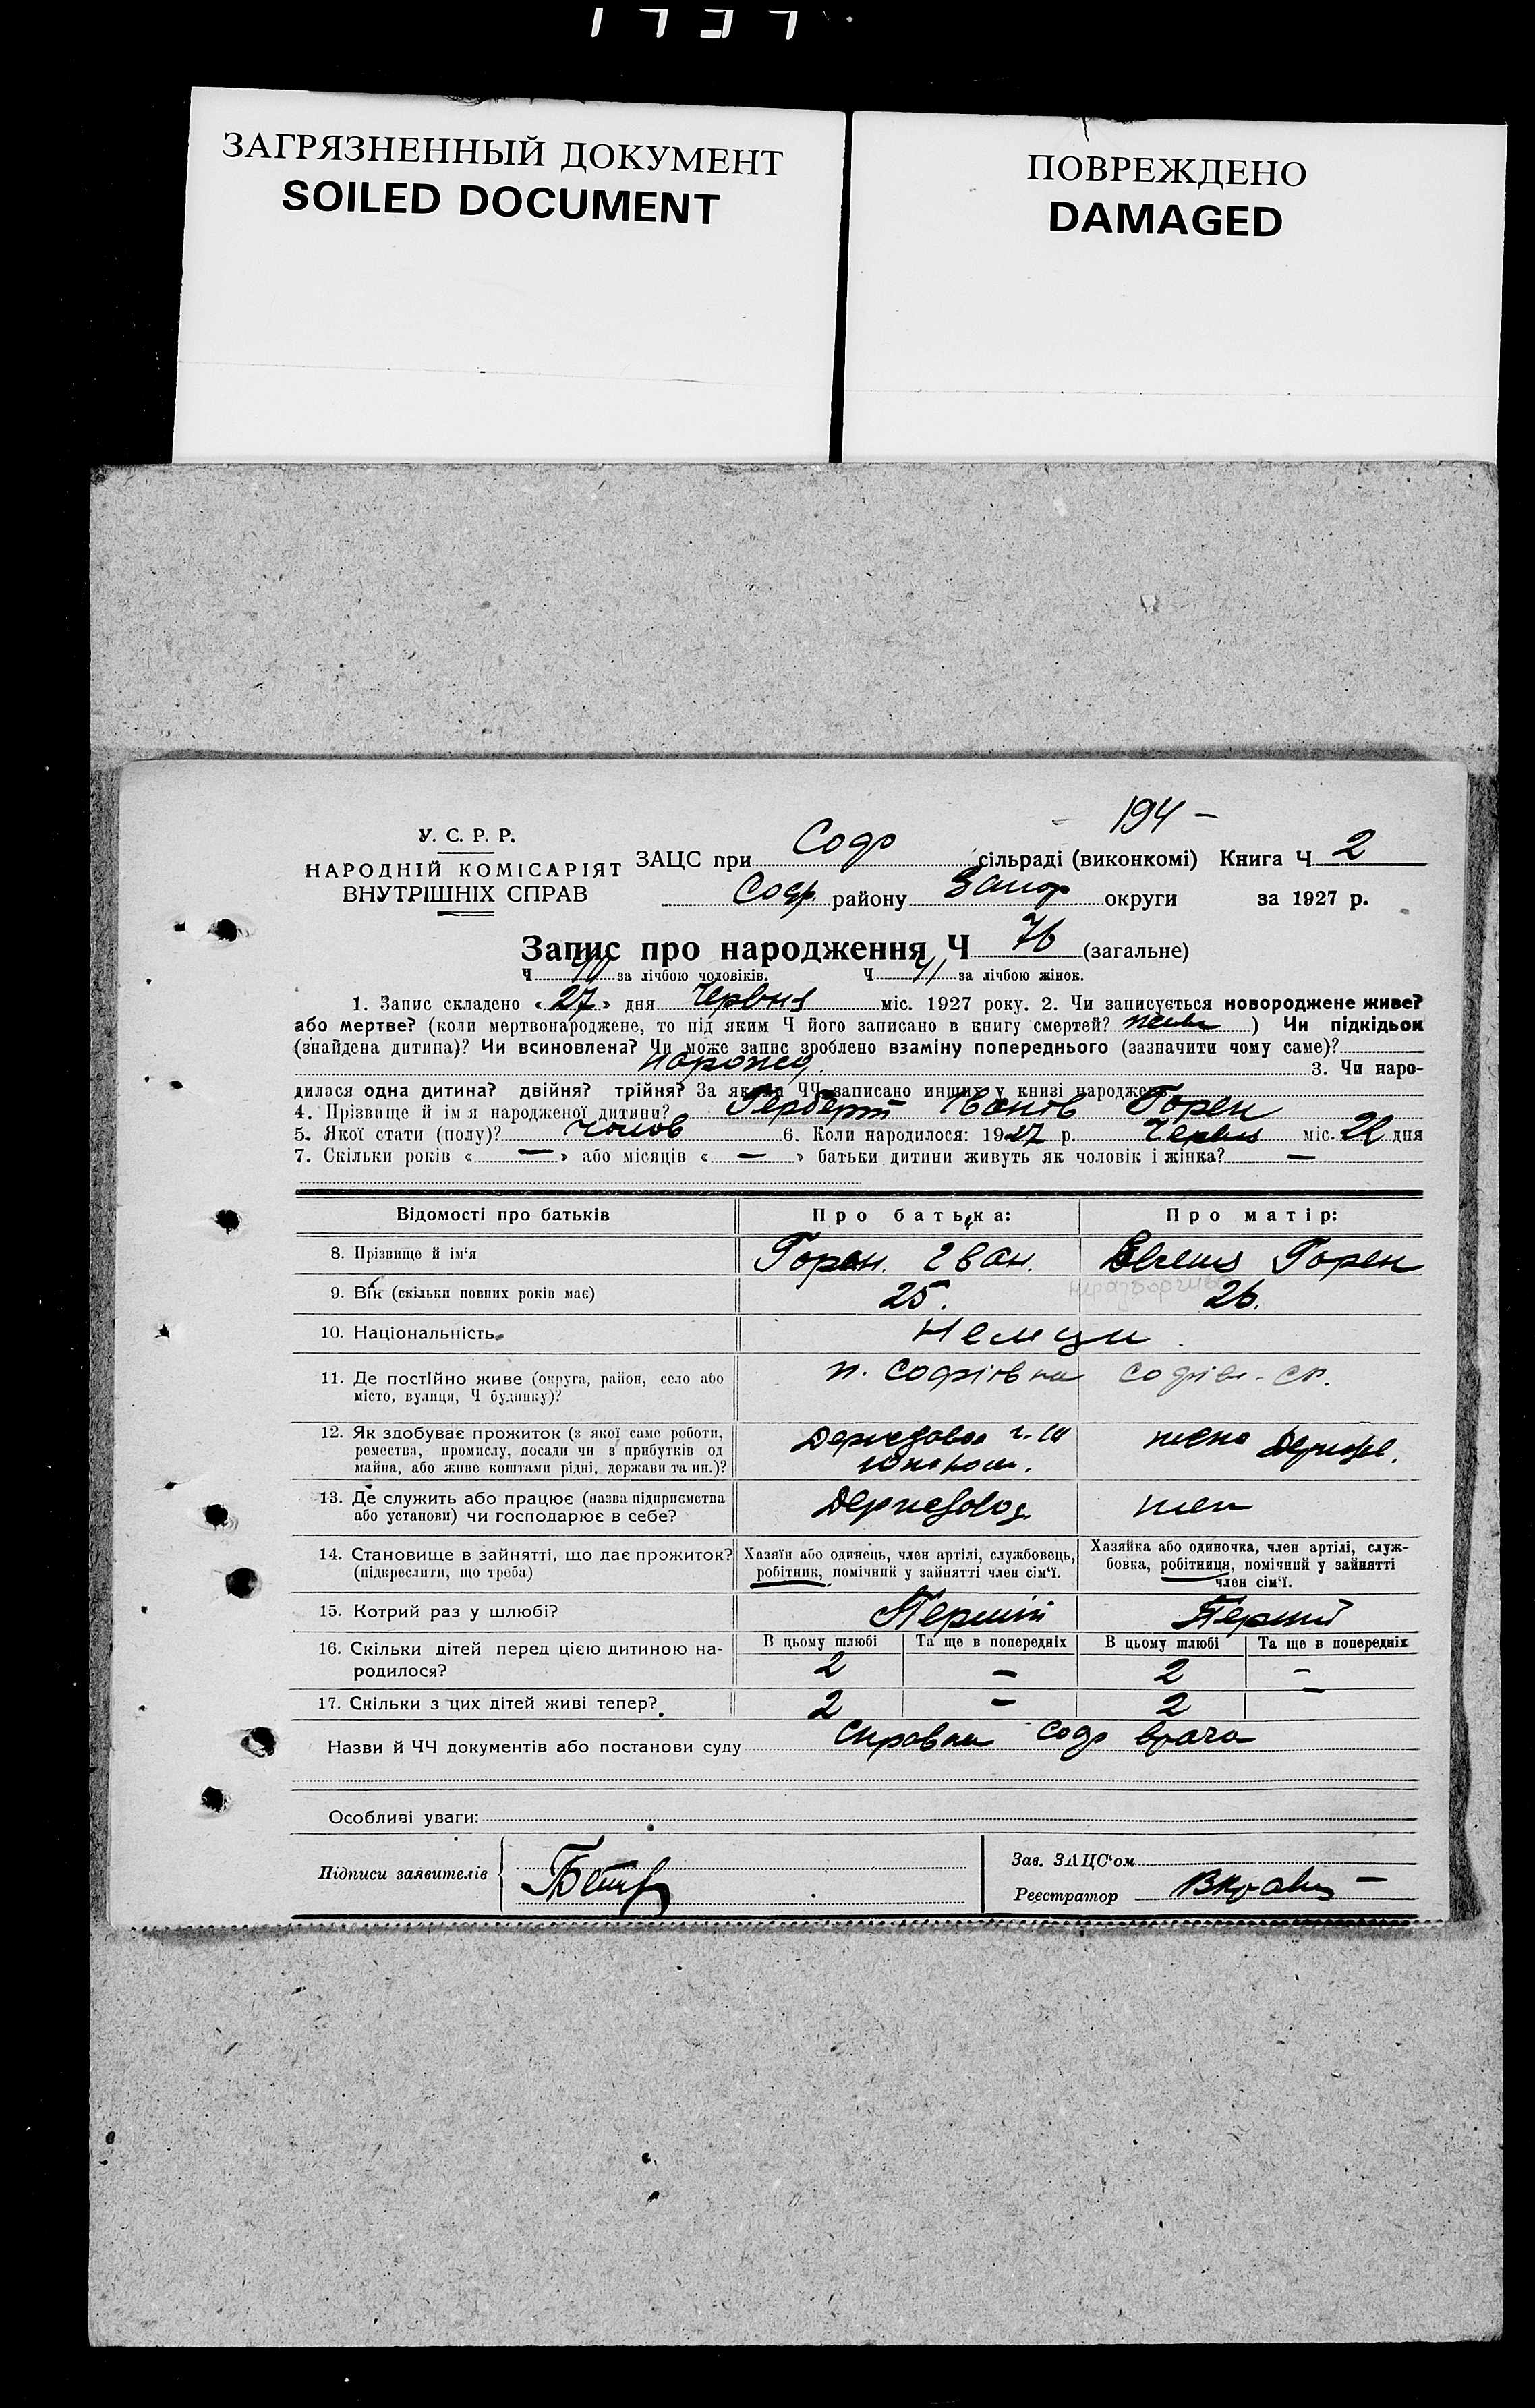 ЗАГРЯЗНЕННЫЙ ДОКУМЕНТ
SOILED DOCUMENT
ПОВРЕЖДЕНО
DAMAGED
194 -
У. С. Р. Р.
НАРОДНІЙ КОМІСАРІЯТ
ВНУТРІШНІХ СПРАВ
ЗАЦС при Соф сільраді (виконкомі) Книга Ч 2
Соф. району Запор округи за 1927 р.
Запис про народження Ч 76 (загальне)
Ч за лічбою чоловіків. Ч за лічбою жінок.
1. Запис складено «27» дня Червня міс. 1927 року. 2. Чи записується новороджене живе?
або мертве? (коли мертвонароджене, то під яким Ч його записано в книгу смертей? ) Чи підкідьок
(знайдена дитина)? Чи всиновлена? Чи може запис зроблено взаміну попереднього (зазначити чому саме)?
3. Чи наро-
дилася одна дитина? двійня? трійня? За якими ЧЧ записано инших у книзі народжень
4. Прізвище й ім'я народженої дитини? Герберт Іванов Горен
5. Якої стати (полу)? чолов 6. Коли народилося: 1927 р. Червня міс. 22 дня
7. Скільки років « — » або місяців « — » батьки дитини живуть як чоловік і жінка? —
Відомості про батьків
Про батька:
Про матір:
8. Прізвище й ім'я
Горен. Іван.
Горен
9. Вік (скільки повних років має)
25.
26.
неразборчиво
10. Національність
Немци.
11. Де постІйно живе (округа, район, село або
місто, вулиця, Ч будинку)?
п. Софіівка
12. Як здобуває прожиток (з якої саме роботи,
ремества, промислу, посади чи з прибутків од
майна, або живе коштами рідні, держави та ин.)?
13. Де служить або працює (назва підприємства
або установи) чи господарює в себе?
14. Становище в зайнятті, що дає прожиток?
(підкреслити, що треба)
Хазяїн або одинець, член артілі, службовець,
робітник, помічний у зайнятті член сім'ї.
Хазяйка або одиночка, член артілі, служ-
бовка, робітниця, помічний у зайнятті
член сім'ї.
15. Котрий раз у шлюбі?
Перший
Перший
16. Скільки дітей перед цією дитиною на-
родилося?
В цьому шлюбі
Та ще в попередніх
В цьому шлюбі
Та ще в попередніх
2 — 2 —
17. Скільки з цих дітей живі тепер?
2 — 2 —
Назви й ЧЧ документів або постанови суду Справка Соф врача
Особливі уваги:
Підписи заявителів
Зав. ЗАЦС'ом
Реєстратор